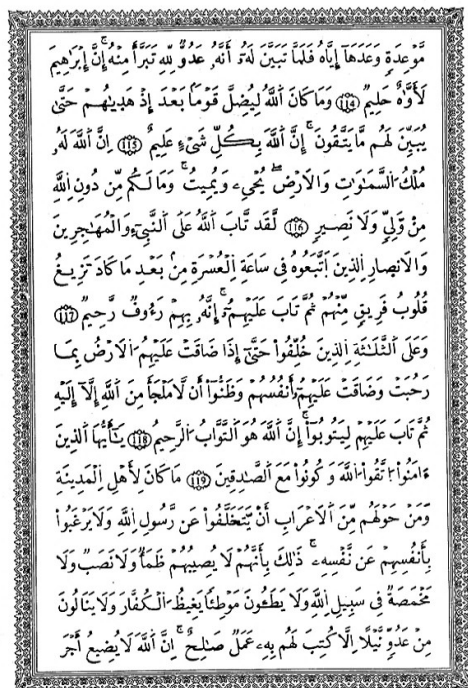 مَّوْعِدَةٍ وَعَدَهَآ إِيَّاهُ فَلَمَّا تَبَيَّنَ لَهُۥٓ أَنَّهُۥ عَدُوٌّ لِّلَّهِ تَبَرَّأَ مِنْهُۚ إِنَّ إِبْرَٰهِيمَ
لَأَوَّٰهٌ حَلِيمٌ ١١٤ وَمَا كَانَ ٱللَّهُ لِيُضِلَّ قَوْمًۢا بَعْدَ إِذْ هَدَىٰهُمْ حَتَّىٰ
يُبَيِّنَ لَهُم مَّا يَتَّقُونَۚ إِنَّ ٱللَّهَ بِكُلِّ شَىْءٍ عَلِيمٌ ١١٥ إِنَّ ٱللَّهَ لَهُۥ
مُلْكُ ٱلسَّمَٰوَٰتِ وَٱلْأَرْضِۖ يُحْىِۦ وَيُمِيتُۚ وَمَا لَكُم مِّن دُونِ ٱللَّهِ
مِنْ وَلِىٍّ وَلَا نَصِيرٍ ١١٦ لَّقَد تَّابَ ٱللَّهُ عَلَى ٱلنَّبِىٓءِ وَٱلْمُهَٰجِرِينَ
وَٱلْأَنصَارِ ٱلَّذِينَ ٱتَّبَعُوهُ فِى سَاعَةِ ٱلْعُسْرَةِ مِنۢ بَعْدِ مَا كَادَ تَزِيغُ
قُلُوبُ فَرِيقٍ مِّنْهُمْ ثُمَّ تَابَ عَلَيْهِمْۚ إِنَّهُۥ بِهِمْ رَءُوفٌ رَّحِيمٌ ١١٧
وَعَلَى ٱلثَّلَٰثَةِ ٱلَّذِينَ خُلِّفُوا۟ حَتَّىٰٓ إِذَا ضَاقَتْ عَلَيْهِمُ ٱلْأَرْضُ بِمَا
رَحُبَتْ وَضَاقَتْ عَلَيْهِمْ أَنفُسُهُمْ وَظَنُّوٓا۟ أَن لَّا مَلْجَأَ مِنَ ٱللَّهِ إِلَّآ إِلَيْهِ
ثُمَّ تَابَ عَلَيْهِمْ لِيَتُوبُوٓا۟ۚ إِنَّ ٱللَّهَ هُوَ ٱلتَّوَّابُ ٱلرَّحِيمُ ١١٨ يَٰٓأَيُّهَا ٱلَّذِينَ
ءَامَنُوا۟ ٱتَّقُوا۟ ٱللَّهَ وَكُونُوا۟ مَعَ ٱلصَّٰدِقِينَ ١١٩ مَا كَانَ لِأَهْلِ ٱلْمَدِينَةِ
وَمَنْ حَوْلَهُم مِّنَ ٱلْأَعْرَابِ أَنْ يَتَخَلَّفُوا۟ عَن رَّسُولِ ٱللَّهِ وَلَا يَرْغَبُوا۟
بِأَنفُسِهِمْ عَن نَّفْسِهِۦۚ ذَٰلِكَ بِأَنَّهُمْ لَا يُصِيبُهُمْ ظَمَأٌ وَلَا نَصَبٌ وَلَا
مَخْمَصَةٌ فِى سَبِيلِ ٱللَّهِ وَلَا يَطَـُٔونَ مَوْطِئًا يَغِيظُ ٱلْكُفَّارَ وَلَا يَنَالُونَ
مِنْ عَدُوٍّ نَّيْلًا إِلَّا كُتِبَ لَهُم بِهِۦ عَمَلٌ صَٰلِحٌۚ إِنَّ ٱللَّهَ لَا يُضِيعُ أَجْرَ